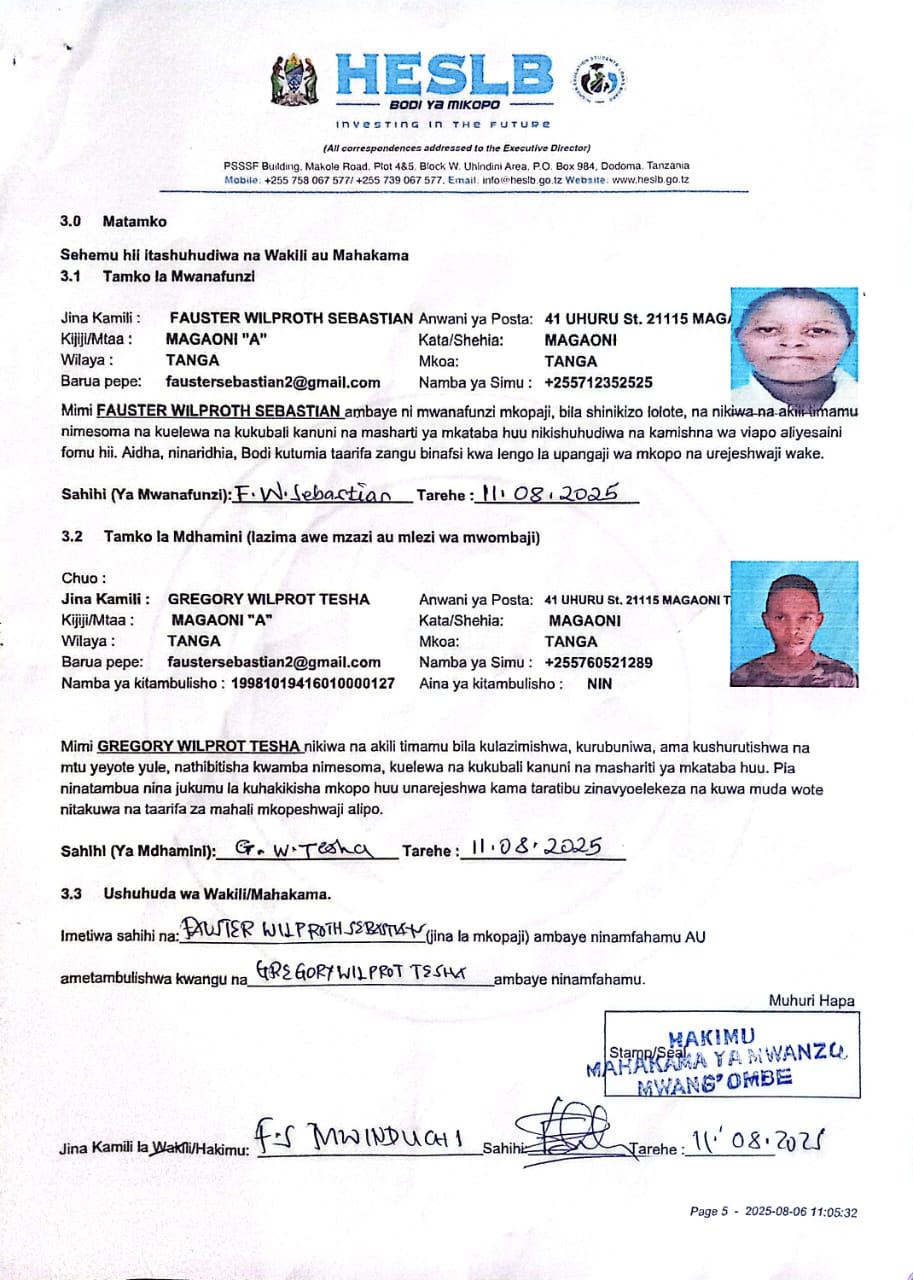 HESLB
BODI YA MIKOPO
INVESTING IN THE FUTURE
(All correspondences addressed to the Executive Director)
PSSSF Building, Makole Road, Plot 4&5, Block W, Uhindini Area, P.O. Box 984, Dodoma, Tanzania
Mobile: +255 758 067 577/ +255 739 067 577, Email: info@heslb.go.tz Website: www.heslb.go.tz
3.0 Matamko
Sehemu hii itashuhudiwa na Wakili au Mahakama
3.1 Tamko la Mwanafunzi
Jina Kamili : FAUSTER WILPROTH SEBASTIAN Anwani ya Posta: 41 UHURU St. 21115 MAGA
Kijiji/Mtaa : MAGAONI "A" Kata/Shehia: MAGAONI
Wilaya : TANGA Mkoa: TANGA
Barua pepe: faustersebastian2@gmail.com Namba ya Simu : +255712352525
Mimi FAUSTER WILPROTH SEBASTIAN ambaye ni mwanafunzi mkopaji, bila shinikizo lolote, na nikiwa na akili timamu
nimesoma na kuelewa na kukubali kanuni na masharti ya mkataba huu nikishuhudiwa na kamishna wa viapo aliyesaini
fomu hii. Aidha, ninaridhia, Bodi kutumia taarifa zangu binafsi kwa lengo la upangaji wa mkopo na urejeshwaji wake.
Sahihi (Ya Mwanafunzi): F.W.Sebastian Tarehe : 11.08.2025
3.2 Tamko la Mdhamini (lazima awe mzazi au mlezi wa mwombaji)
Chuo :
Jina Kamili : GREGORY WILPROT TESHA Anwani ya Posta: 41 UHURU St. 21115 MAGAONI T
Kijiji/Mtaa : MAGAONI "A" Kata/Shehia: MAGAONI
Wilaya : TANGA Mkoa: TANGA
Barua pepe: faustersebastian2@gmail.com Namba ya Simu : +255760521289
Namba ya kitambulisho : 19981019416010000127 Aina ya kitambulisho : NIN
Mimi GREGORY WILPROT TESHA nikiwa na akili timamu bila kulazimishwa, kurubuniwa, ama kushurutishwa na
mtu yeyote yule, nathibitisha kwamba nimesoma, kuelewa na kukubali kanuni na mashariti ya mkataba huu. Pia
ninatambua nina jukumu la kuhakikisha mkopo huu unarejeshwa kama taratibu zinavyoelekeza na kuwa muda wote
nitakuwa na taarifa za mahali mkopeshwaji alipo.
Sahihi (Ya Mdhamini): G. W. Tesha Tarehe : 11.08.2025
3.3 Ushuhuda wa Wakili/Mahakama.
Imetiwa sahihi na: FAUSTER WILPROTH SEBASTIAN (jina la mkopaji) ambaye ninamfahamu AU
ametambulishwa kwangu na GREGORY WILPROT TESHA ambaye ninamfahamu.
Muhuri Hapa
Stamp/Seal
HAKIMU
MAHAKAMA YA MWANZO
MWANG'OMBE
Jina Kamili la Wakili/Hakimu: F.S MWINDUCHI Sahihi: Tarehe : 11.08.2025
Page 5 - 2025-08-06 11:05:32